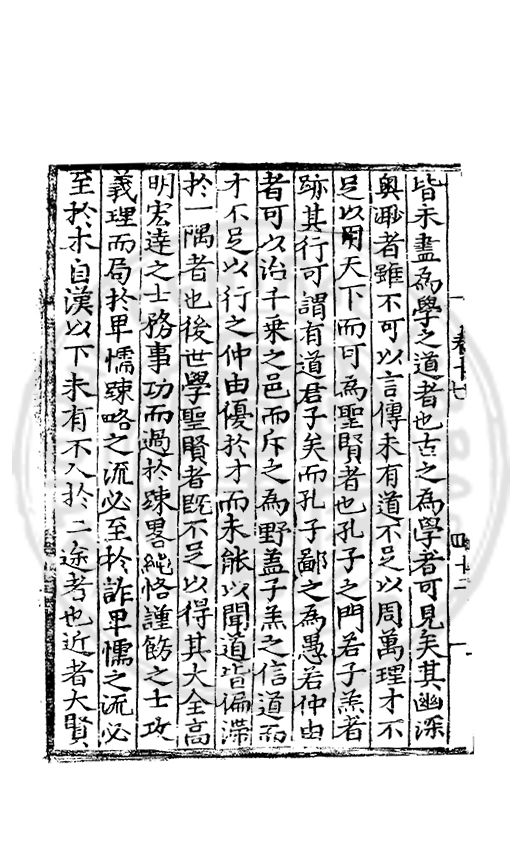 卷十七 四十二
皆未盡為學之道者也古之為學者可見矣其幽深
奥𮟏者雖不可以言傳未有道不足以周萬理才不
足以用天下而可為聖賢者也孔子之門若子羔者
跡其行可謂有道君子矣而孔子鄙之為愚若仲由
者可以治千乗之邑而斥之為野蓋子羔之信道而
才不足以行之仲由優於才而未能以聞道皆偏滞
於一隅者也後世學聖賢者既不足以得其大全高
明宏達之士務事功而過於踈畧純恪謹飭之士攻
義理而局於卑懦踈略之流必至於詐卑懦之流必
至於木自漢以下未有不入於二途者也近者大賢